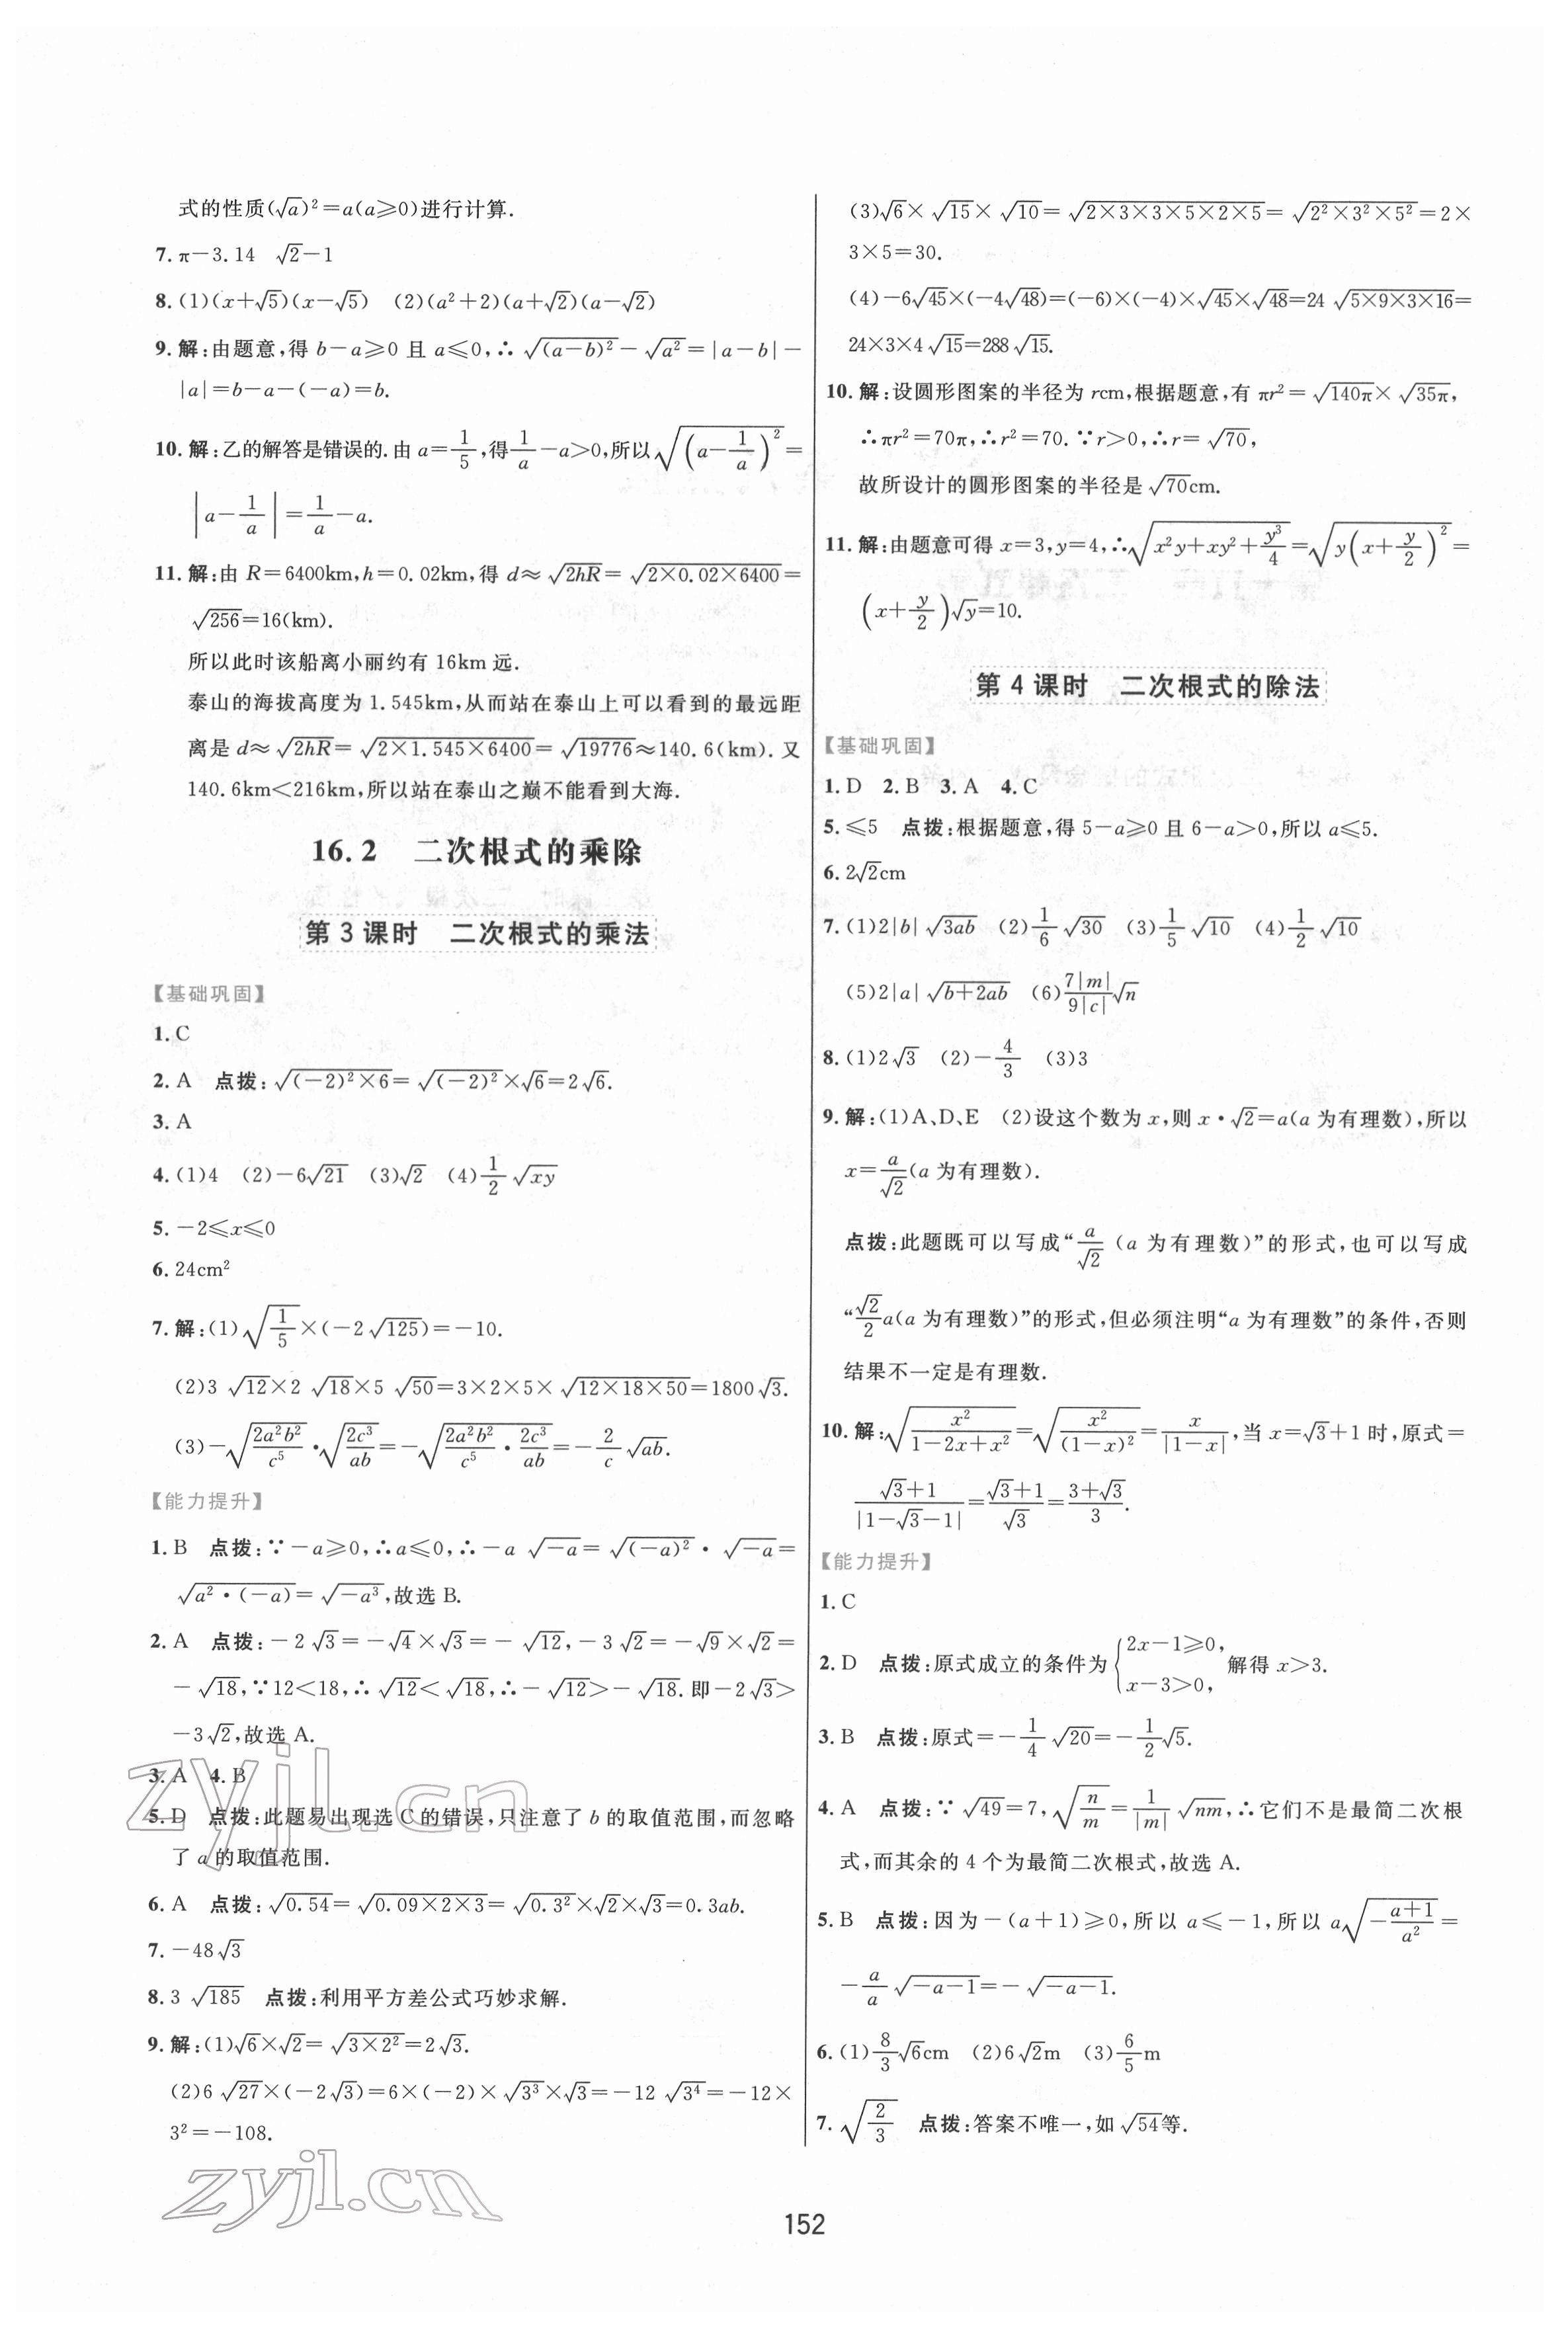 式的性质(√a)²=a(a≥0)进行计算.
7. π-3.14　√2-1
8. (1)(x+√5)(x-√5)　(2)(a²+2)(a+√2)(a-√2)
9. 解:由题意,得 b-a≥0 且 a≤0,∴√(a-b)²-√a²=|a-b|-
|a|=b-a-(-a)=b.
10. 解:乙的解答是错误的.由 a=1/5,得1/a-a>0,所以√(a-1/a)²=
|a-1/a|=1/a-a.
11. 解:由 R=6400km,h=0.02km,得 d≈√2hR=√2×0.02×6400=
√256=16(km).
所以此时该船离小丽约有 16km 远.
泰山的海拔高度为 1.545km,从而站在泰山上可以看到的最远距
离是 d≈√2hR=√2×1.545×6400=√19776≈140.6(km).又
140.6km<216km,所以站在泰山之巅不能看到大海.
16.2　二次根式的乘除
第 3 课时　二次根式的乘法
【基础巩固】
1. C
2. A　点拨:√(-2)²×6=√(-2)²×√6=2√6.
3. A
4. (1)4　(2)-6√21　(3)√2　(4)1/2√xy
5. -2≤x≤0
6. 24cm²
7. 解:(1)√1/5×(-2√125)=-10.
(2)3√12×2√18×5√50=3×2×5×√12×18×50=1800√3.
(3)-√2a²b²/c⁵·√2c³/ab=-√2a²b²/c⁵·2c³/ab=-2/c√ab.
【能力提升】
1. B　点拨:∵-a≥0,∴a≤0,∴-a√-a=√(-a)²·√-a=
√a²·(-a)=√-a³,故选 B.
2. A　点拨:-2√3=-√4×√3=-√12,-3√2=-√9×√2=
-√18,∵12<18,∴√12<√18,∴-√12>-√18.即-2√3>
-3√2,故选 A.
3. A　4. B
5. D　点拨:此题易出现选 C 的错误,只注意了 b 的取值范围,而忽略
了 a 的取值范围.
6. A　点拨:√0.54=√0.09×2×3=√0.3²×√2×√3=0.3ab.
7. -48√3
8. 3√185　点拨:利用平方差公式巧妙求解.
9. 解:(1)√6×√2=√3×2²=2√3.
(2)6√27×(-2√3)=6×(-2)×√3³×√3=-12√3⁴=-12×
3²=-108.
(3)√6×√15×√10=√2×3×3×5×2×5=√2²×3²×5²=2×
3×5=30.
(4)-6√45×(-4√48)=(-6)×(-4)×√45×√48=24√5×9×3×16=
24×3×4√15=288√15.
10. 解:设圆形图案的半径为 rcm,根据题意,有 πr²=√140π×√35π,
∴πr²=70π,∴r²=70.∵r>0,∴r=√70,
故所设计的圆形图案的半径是√70cm.
11. 解:由题意可得 x=3,y=4,∴√x²y+xy²+y³/4=√y(x+y/2)²=
(x+y/2)√y=10.
第 4 课时　二次根式的除法
【基础巩固】
1. D　2. B　3. A　4. C
5. ≤5　点拨:根据题意,得 5-a≥0 且 6-a>0,所以 a≤5.
6. 2√2cm
7. (1)2|b|√3ab　(2)1/6√30　(3)1/5√10　(4)1/2√10
(5)2|a|√b+2ab　(6)7|m|/9|c|√n
8. (1)2√3　(2)-4/3　(3)3
9. 解:(1)A、D、E　(2)设这个数为 x,则 x·√2=a(a 为有理数),所以
x=a/√2(a 为有理数).
点拨:此题既可以写成“a/√2(a 为有理数)”的形式,也可以写成
“√2/2a(a 为有理数)”的形式,但必须注明“a 为有理数”的条件,否则
结果不一定是有理数.
10. 解:√x²/1-2x+x²=√x²/(1-x)²=x/|1-x|,当 x=√3+1 时,原式=
√3+1/|1-√3-1|=√3+1/√3=3+√3/3.
【能力提升】
1. C
2. D　点拨:原式成立的条件为{2x-1≥0, x-3>0,解得 x>3.
3. B　点拨:原式=-1/4√20=-1/2√5.
4. A　点拨:∵√49=7,√n/m=1/|m|√nm,∴它们不是最简二次根
式,而其余的 4 个为最简二次根式,故选 A.
5. B　点拨:因为-(a+1)≥0,所以 a≤-1,所以 a√-a+1/a²=
-a/a√-a-1=-√-a-1.
6. (1)8/3√6cm　(2)6√2m　(3)6/5m
7. √2/3　点拨:答案不唯一,如√54等.
zyjl.cn
zyjl.cn
152